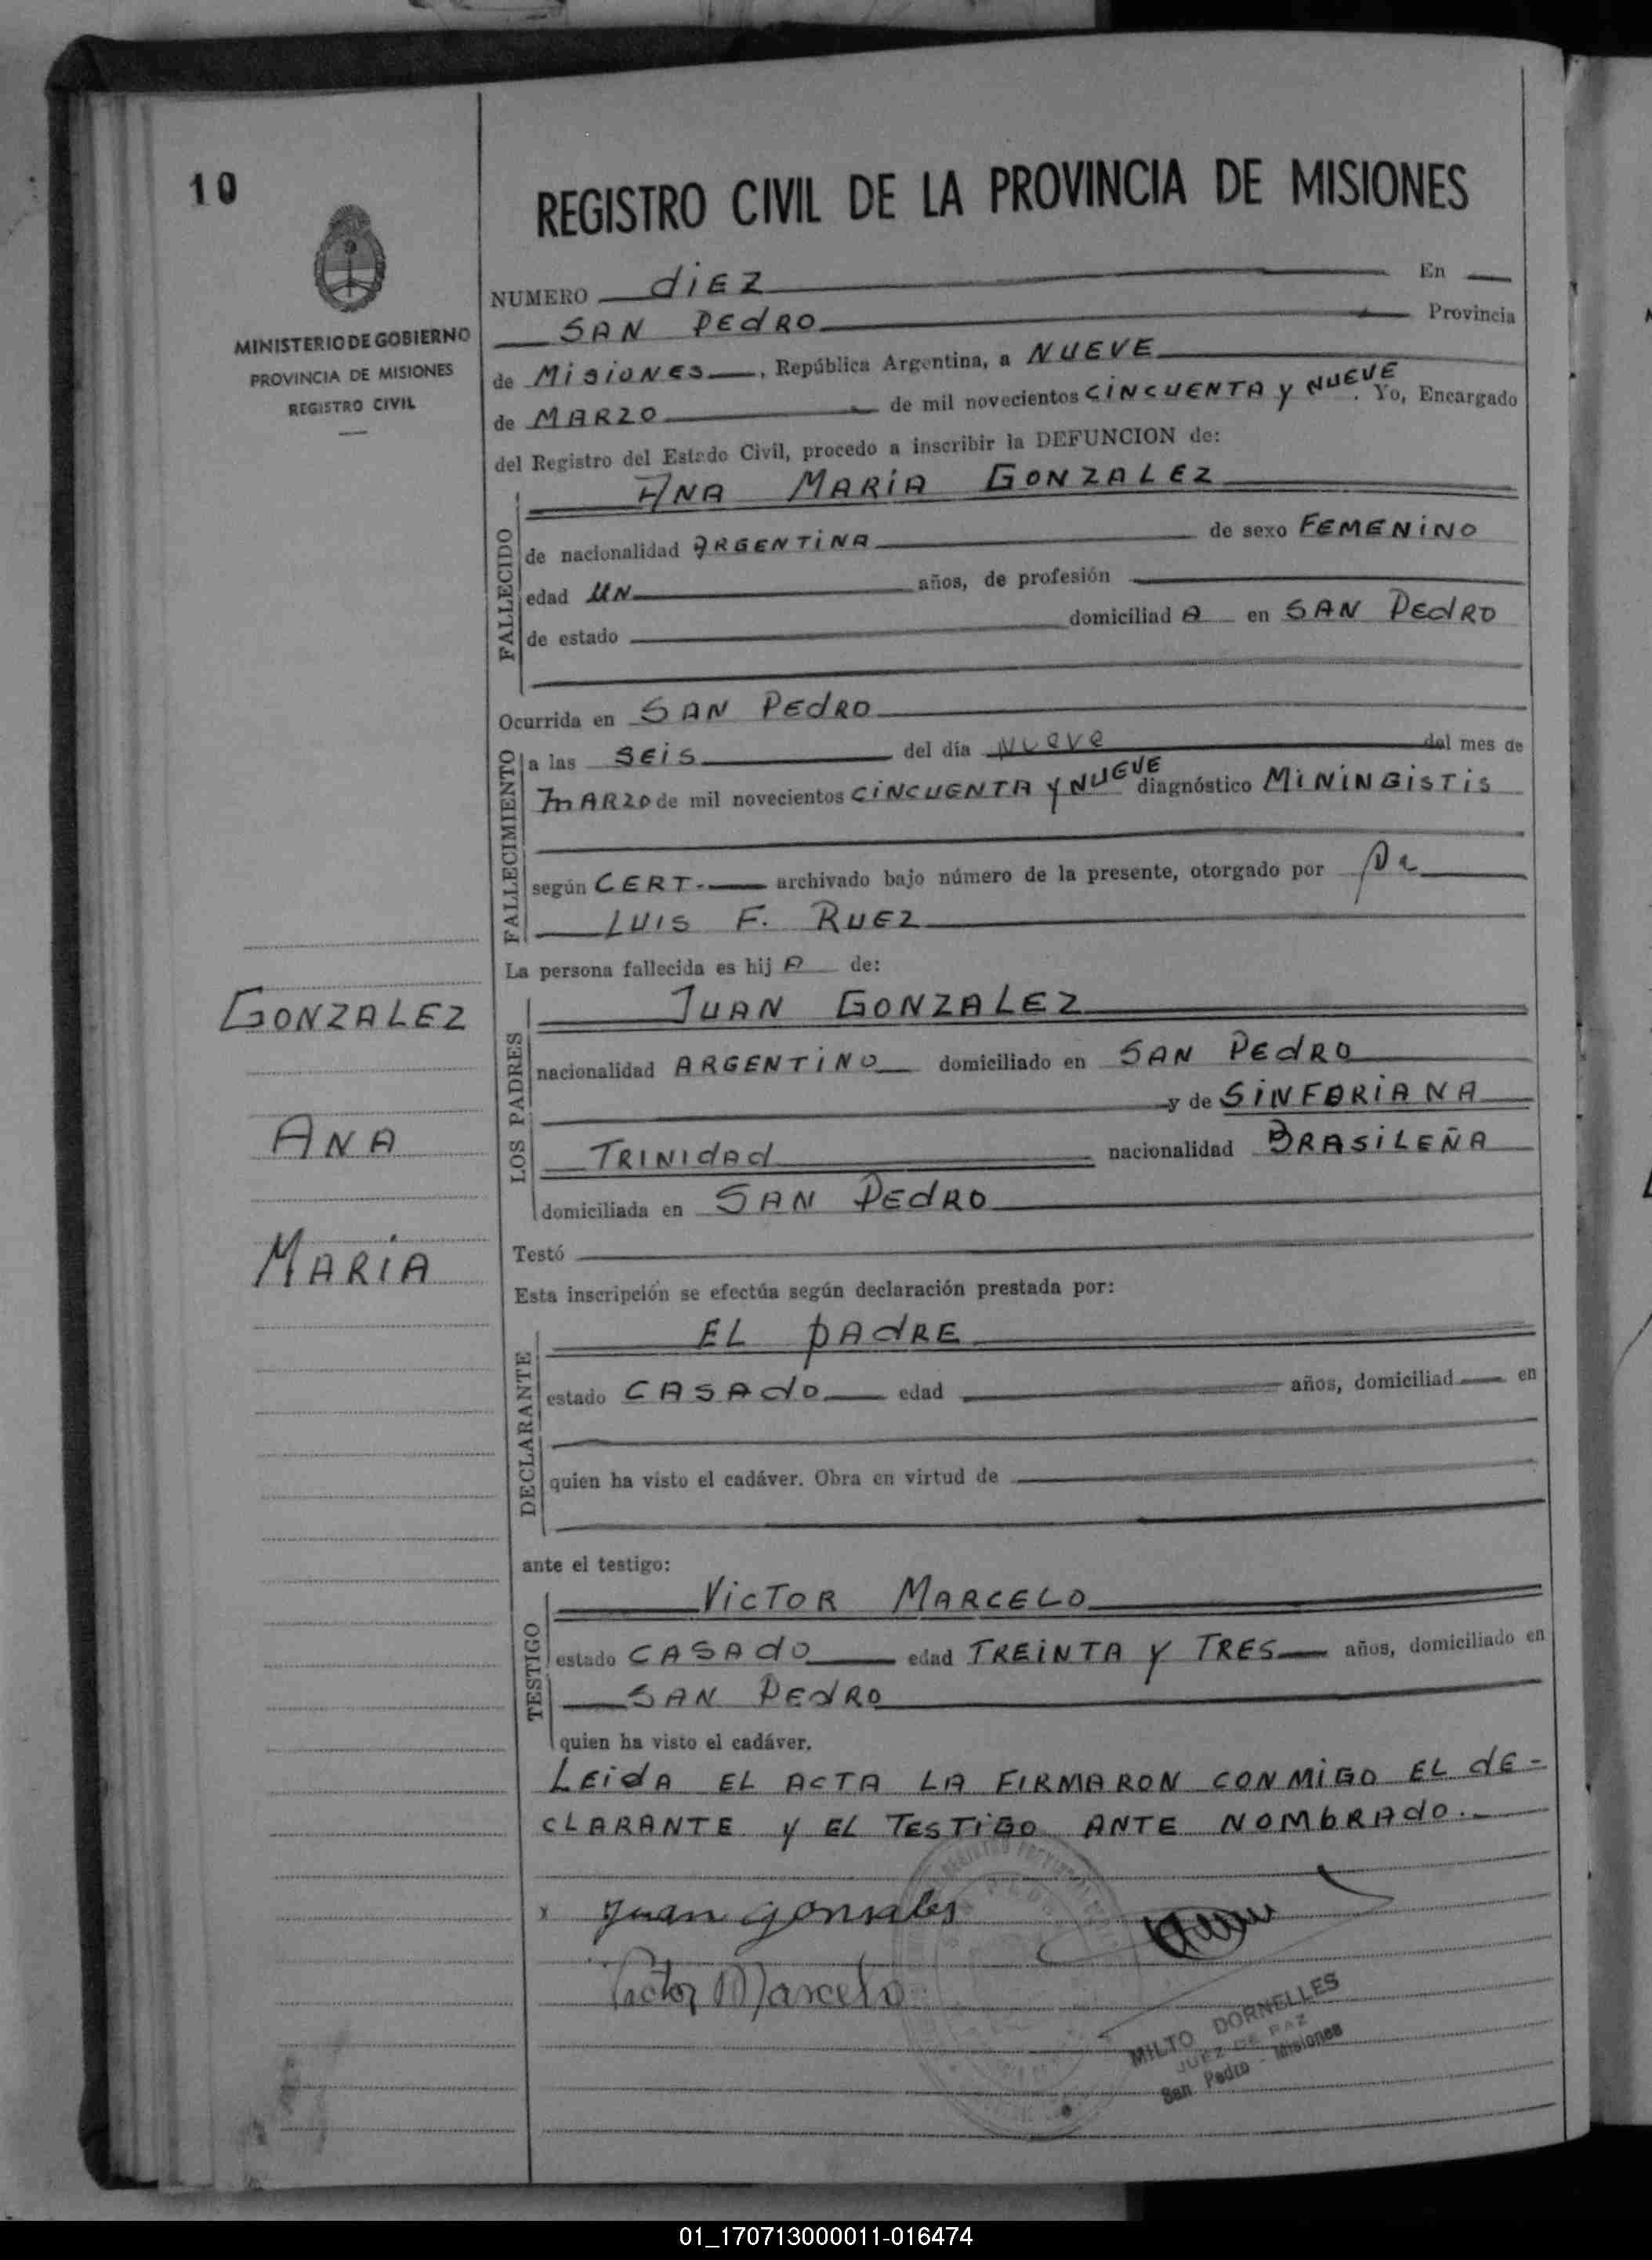 10
MINISTERIO DE GOBIERNO
PROVINCIA DE MISIONES
REGISTRO CIVIL
REGISTRO CIVIL DE LA PROVINCIA DE MISIONES
NUMERO diEZ En
SAN PEdRO Provincia
de MiSiONES, República Argentina, a NUEVE
de MARZO de mil novecientos CiNCUENTA y NUEVE. Yo, Encargado
del Registro del Estado Civil, procedo a inscribir la DEFUNCION de:
ANA MARiA GONZALEZ
FALLECIDO
de nacionalidad ARGENTiNA de sexo FEMENiNO
edad UN años, de profesión
de estado domiciliad A en SAN PEdRO
Ocurrida en SAN PEdRO
FALLECIMIENTO
a las SEiS del día NUEVE del mes de
MARZO de mil novecientos CiNCUENTA y NUEVE diagnóstico MiNiNGiSTiS
según CERT.- archivado bajo número de la presente, otorgado por Dr
LUIS F. RUEZ
La persona fallecida es hij A de:
JUAN GONZALEZ
LOS PADRES
nacionalidad ARGENTiNO domiciliado en SAN PEdRO
y de SiNFORiANA
TRINIdAd nacionalidad BRASiLEÑA
domiciliada en SAN PEdRO
Testó
Esta inscripción se efectúa según declaración prestada por:
EL PAdRE
DECLARANTE
estado CASAdO edad años, domiciliad en
quien ha visto el cadáver. Obra en virtud de
ante el testigo:
ViCTOR MARCELO
TESTIGO
estado CASAdO edad TREiNTA y TRES años, domiciliado en
SAN PEdRO
quien ha visto el cadáver.
LEidA EL ACTA LA FIRMARON CONMiGO EL dE-
CLARANTE y EL TESTiGO ANTE NOMbRAdO.-
x Juan gonsales
Victor Marcelo
MILTO DORNELLES
JUEZ DE PAZ
San Pedro - Misiones
GONZALEZ
ANA
MARiA
01_170713000011-016474